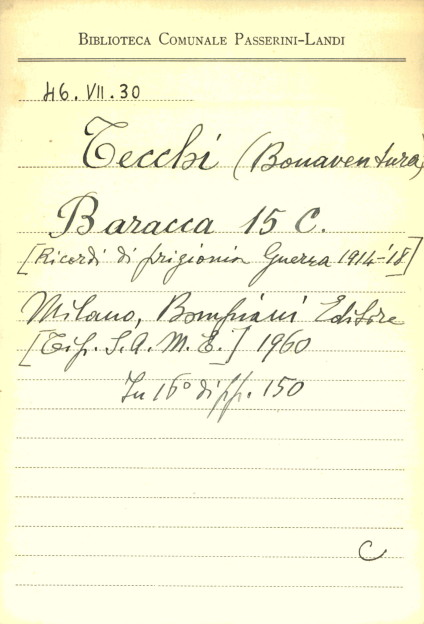 BIBLIOTECA COMUNALE PASSERINI-LANDI
46.VII.30
Tecchi (Bonaventura)
Baracca 15 C.
[Ricordi di prigionia Guerra 1914-'18]
Milano, Bompiani Editore
[Tip. S.A.M.E.] 1960
In 16° di pp. 150
C